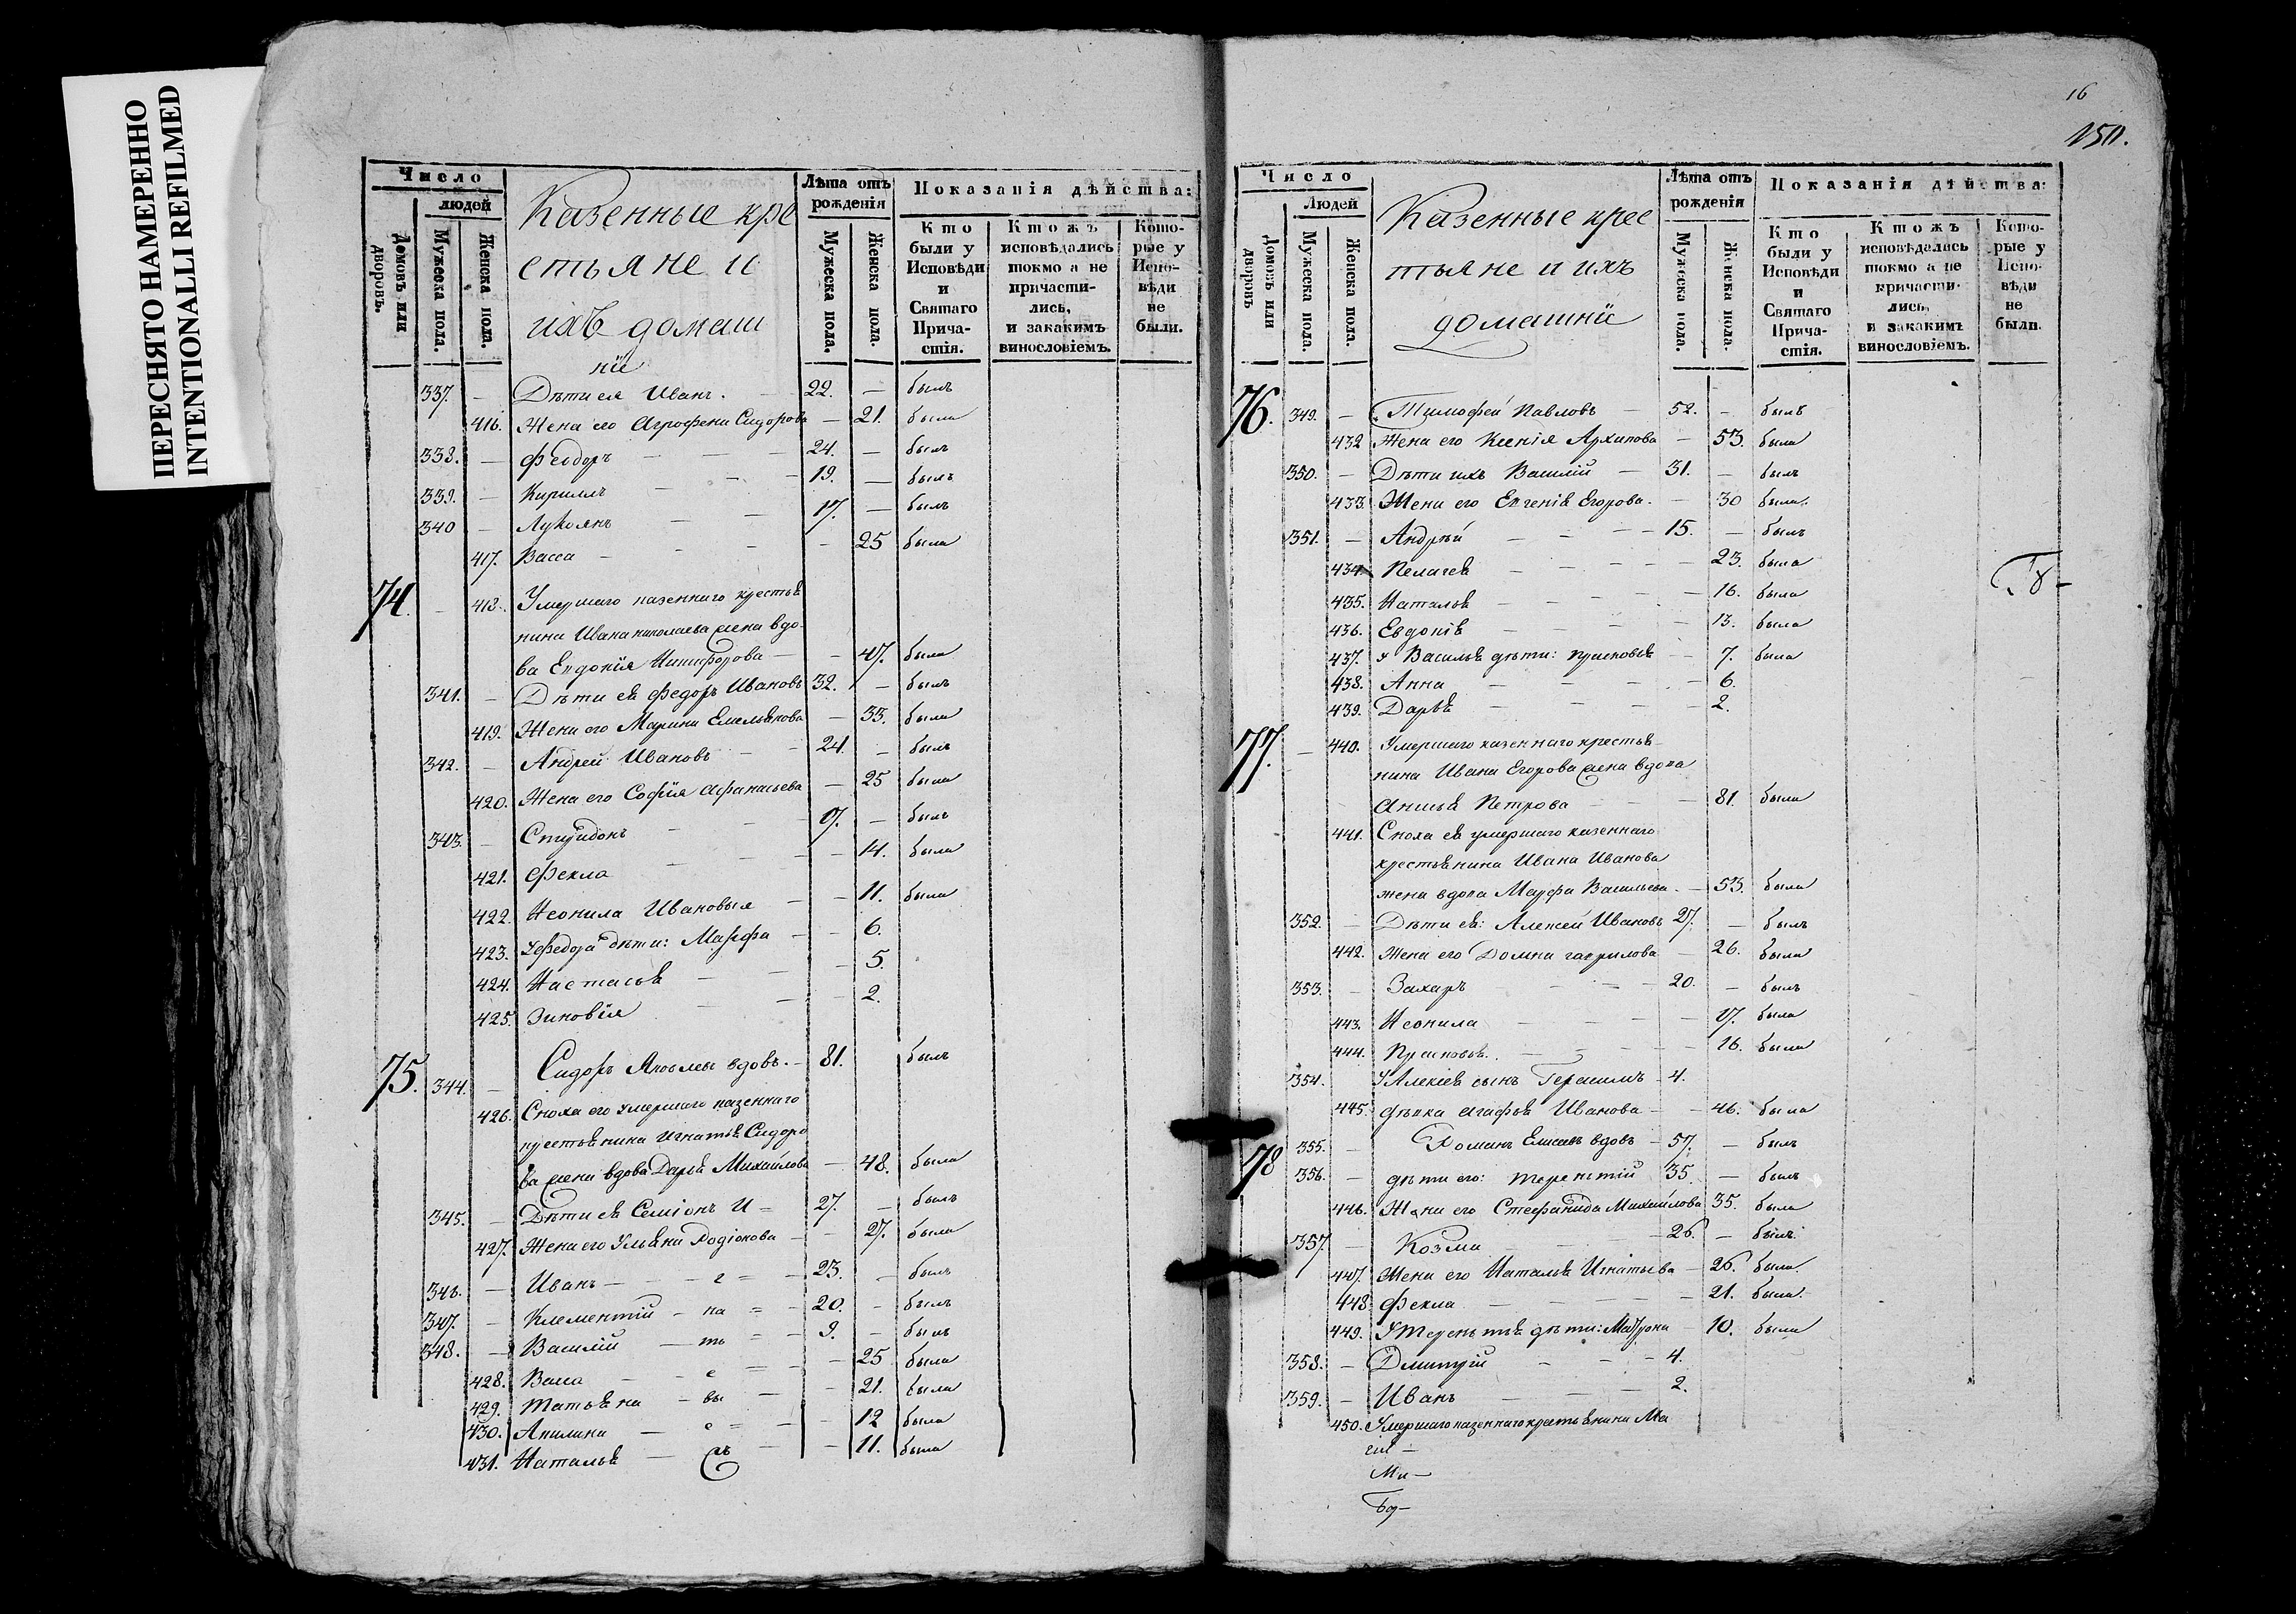 ПЕРЕСНЯТО НАМЕРЕННО
INTENTIONALLI REFILMED
Число
людей
Домовъ или дворовъ.
Мужеска пола.
Женска пола.
Казенные кре
стьяне и
ихъ домаш
ніи
Лѣта отъ рожденія
Мужеска пола.
Женска пола.
Показанія дѣйства:
Кто были у Исповѣди и Святаго Прича- стія.
Кто жъ исповѣдались токмо а не причасти- лись, и закакимъ винословіемъ.
Кото- рые у Испо- вѣди не были.
337. — Дѣти ея Иванъ. 22. — былъ
416. Жена его Агрофена Сидорова — 21. была
338. — Феодоръ — — — 24. — былъ
339. — Кириллъ — — — 19. — былъ
340 — Лукоянъ — — 17. — былъ
417. Васса — — — — 25 была
74. — 418. Умершаго казеннаго крестья
нина Ивана николаева жена вдо-
ва Евдокия Никифорова — — 47. была
341. — Дѣти ея Федоръ Ивановъ 32. — былъ
419. Жена его Марина Емельянова — 33. была
342. — Андрей Ивановъ — — 24. — былъ
420. Жена его Софія Афанасьева — 25 была
343. — Спиридонъ — — — 17. — былъ
421. Фекла — — — — 14. была
422. Неонила Ивановыя — — 11. была
423. У Федора дѣти: Марфа — — 6.
424. Настасья — — — 5.
425. Зиновія — — — 2.
75. 344. — Сидоръ вдовъ. — 81. былъ
426. Сноха его умершаго казеннаго
крестьянина Игнатья Сидоро
ва жена вдова Дарья Михайлова — 48. была
345. — Дѣти ея Семіонъ И = 27. — былъ
427. Жена его Ульяна Родіонова — — 27. была
346. — Иванъ — — — г = — 23. — былъ
347. — Клементій — на = — 20. — былъ
348. — Василій — ть = — 9. — былъ
428. Васса — — е — = — — 25 была
429. Татьяна — вы — — 21. была
430. Акилина — е = — — 12 была
431. Наталья — — — 11. была
16
150.
Число
Людей
Домовъ или дворовъ
Мужеска пола.
Женска пола.
Казенные крес
тьяне и ихъ
домашніи
Лѣта отъ рожденія
Мужеска пола.
Женска пола.
Показанія дѣйства:
Кто были у Исповѣди и Святаго Прича- стія.
Кто жъ исповѣдались токмо а не причасти- лись, и закакимъ винословіемъ.
Кото- рые у Испо- вѣди не были.
76. 349. — Тимофей Павловъ — 52. — былъ
432 Жена его Ксенія Архипова — 53. была
350. — Дѣти ихъ Василій — 31. — былъ
433. Жена его Евгенія Егорова. — 30 была
351. — Андрѣй — — — 15. — былъ
434. Пелагея — — — — 23. была
435. Наталья — — — — 16. была
436. Евдокія — — — — 13. была
437. У Василья дѣти: Прасковья — 7. была
438. Анна — — — — 6.
439. Дарья — — — — 2.
77. — 440. Умершаго казеннаго крестья-
нина Ивана Егорова жена вдова
Анисья Петрова — — 81. была
441. Сноха ея умершаго казеннаго
крестьянина Ивана Иванова
жена вдова Марфа Васильева. — 53. была
352. — Дѣти ея: Алексей Ивановъ 27. — былъ
442. Жена его Домна гаврилова — 26. была
353. — Захаръ — — — 20. — былъ
443. Неонила — — — — 17. была
444. Прасковья. — — — — 16. была
354. У Алексія сынъ Герасимъ — 4.
445. дѣвка Агафья Иванова — — 46. была
78 355. — Романъ Елисеевъ вдовъ — 57. — былъ
356. — дѣти его: терентій 35. — былъ
446. Жена его Стефанида Михайлова 35. была
357 — Козма — — — 26. — былъ
447. Жена его Наталья Игнатьева — 26. была
448. Фекла — — — — 21. была.
449. У Терентья дѣти: Матрона — 10. была
358. — Дмитрій — — — 4.
359. — Иванъ — — — 2.
450. Умершаго казеннаго крестьянина
Ми—